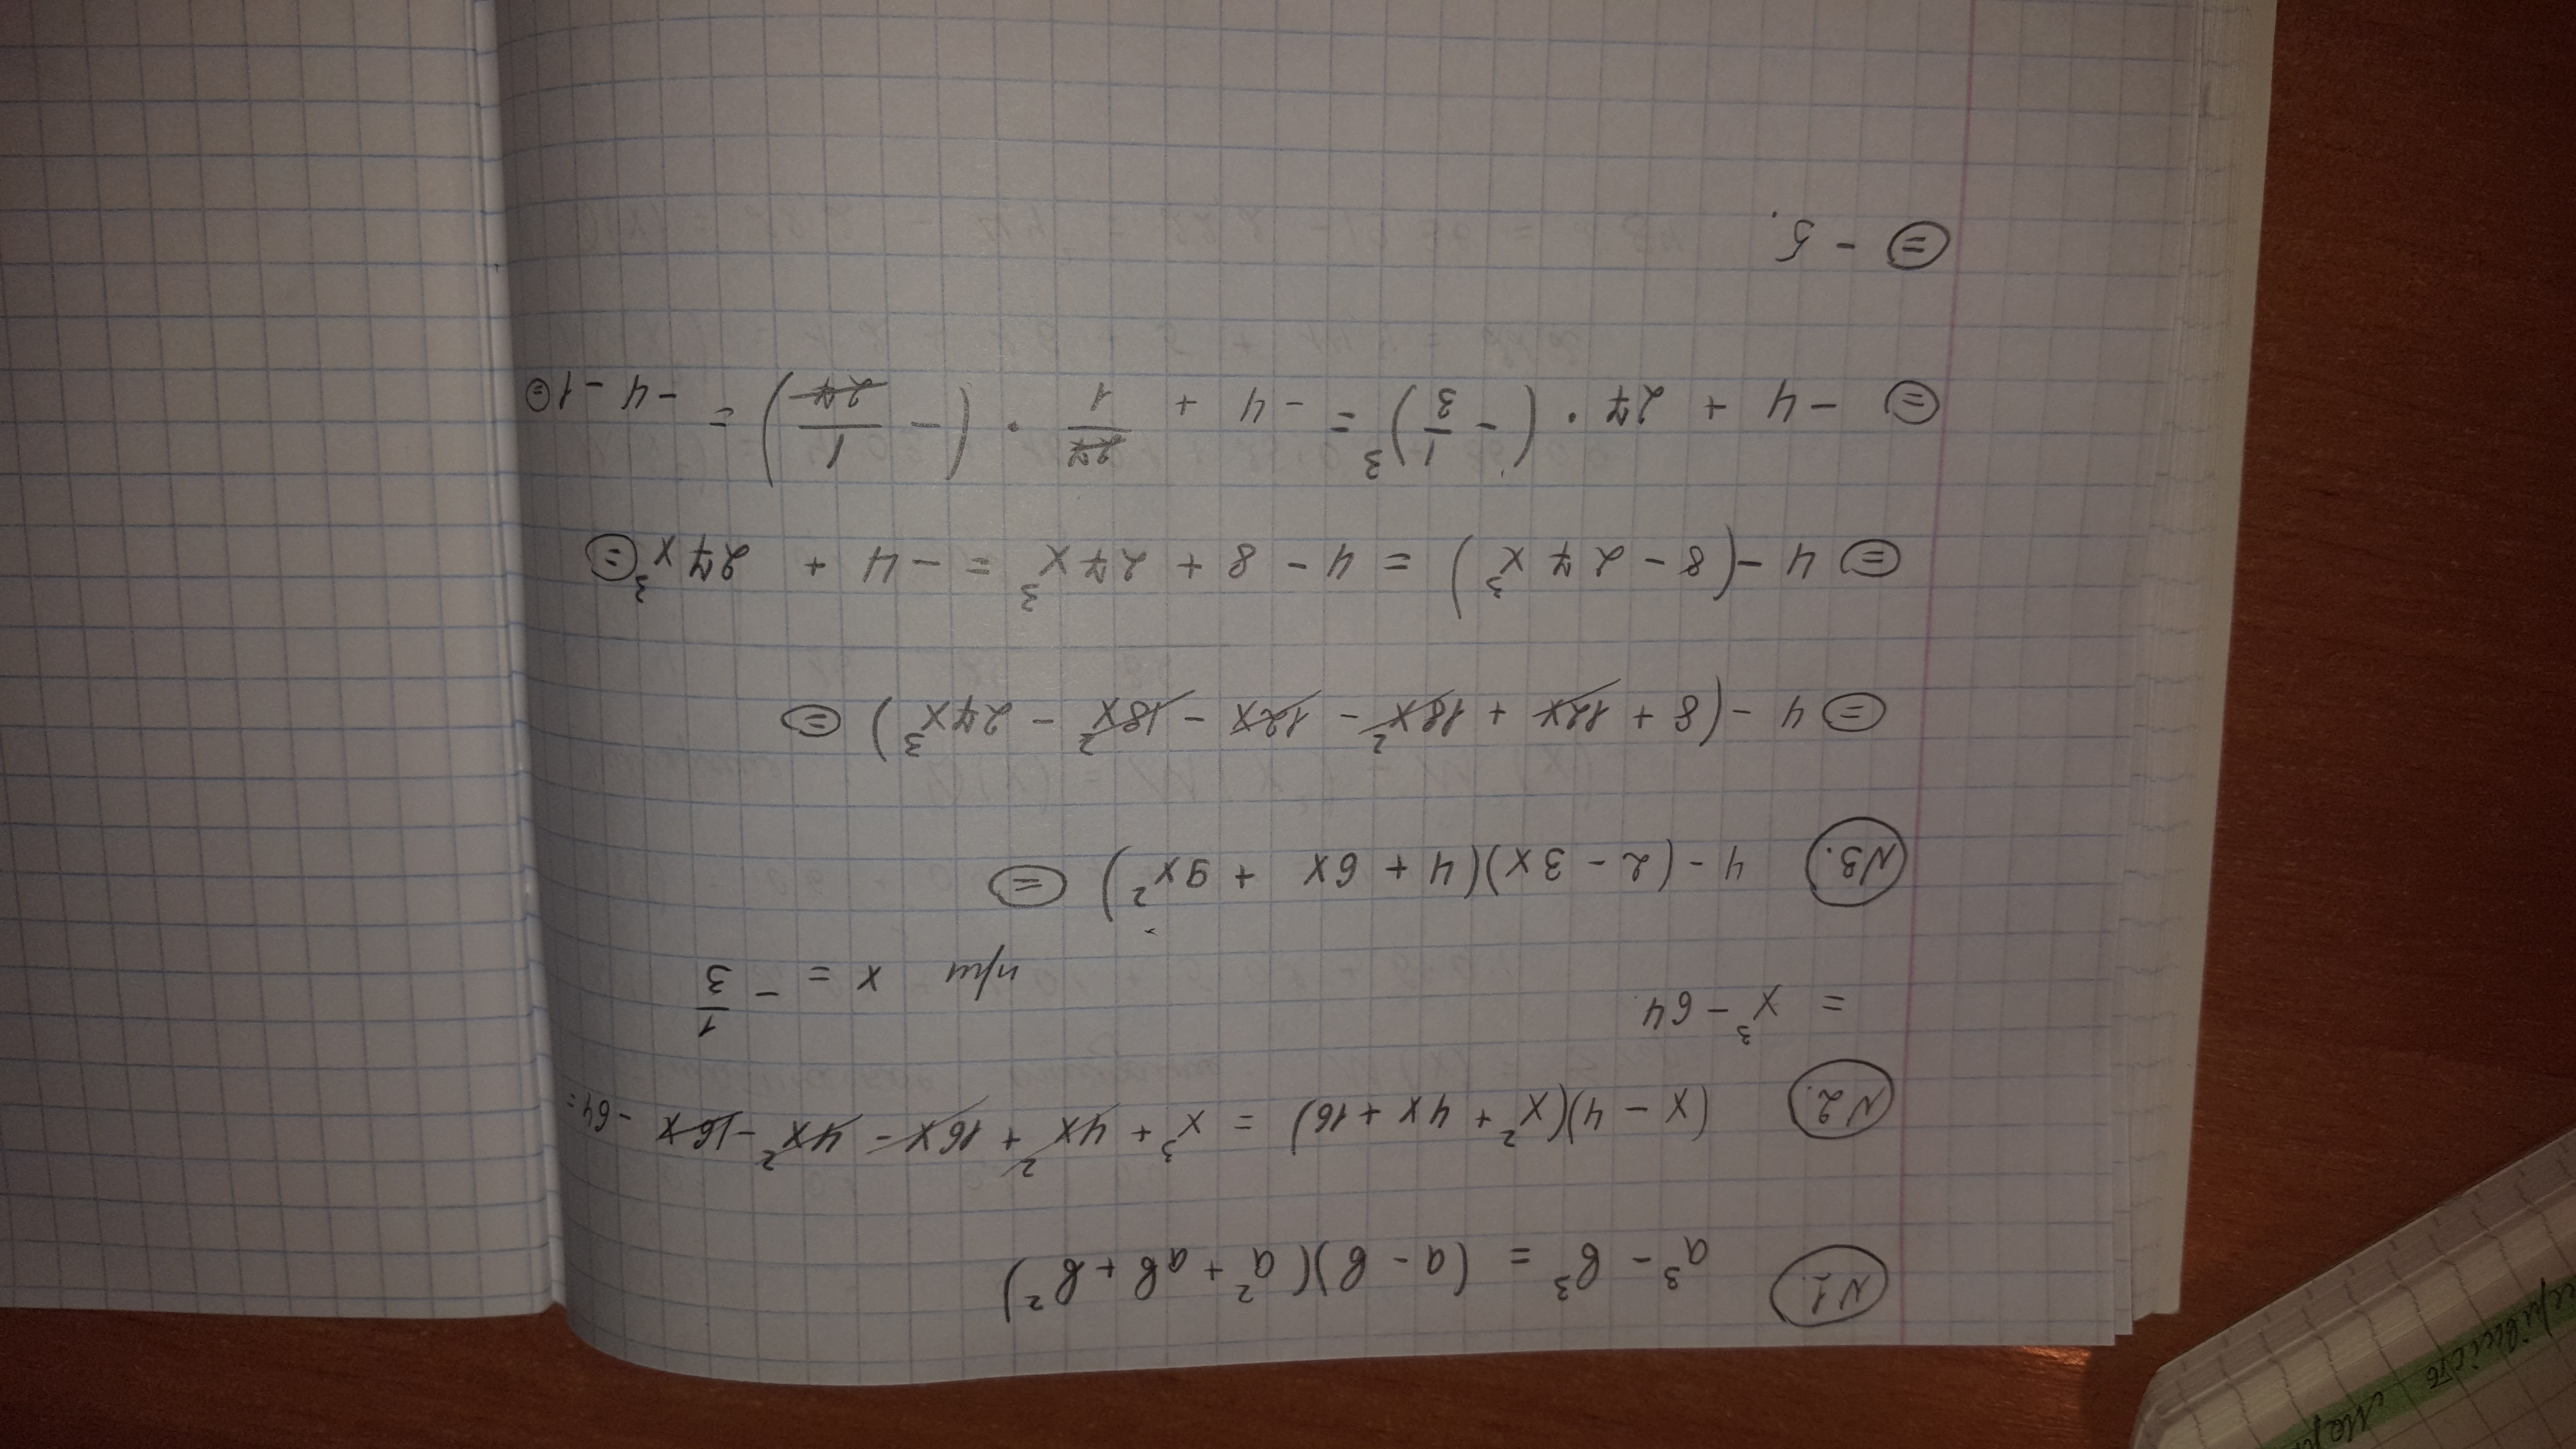 N1. a³ - b³ = (a - b)(a² + ab + b²)
N2. (x - 4)(x² + 4x + 16) = x³ + 4x² + 16x - 4x² - 16x - 64 =
= x³ - 64
при x = - 1/3
N3. 4 - (2 - 3x)(4 + 6x + 9x²) =
= 4 - (8 + 12x + 18x² - 12x - 18x² - 27x³) =
= 4 - (8 - 27x³) = 4 - 8 + 27x³ = -4 + 27x³ =
= -4 + 27 · (- 1/3)³ = -4 + 27/1 · (- 1/27) = -4 - 1 =
= -5.